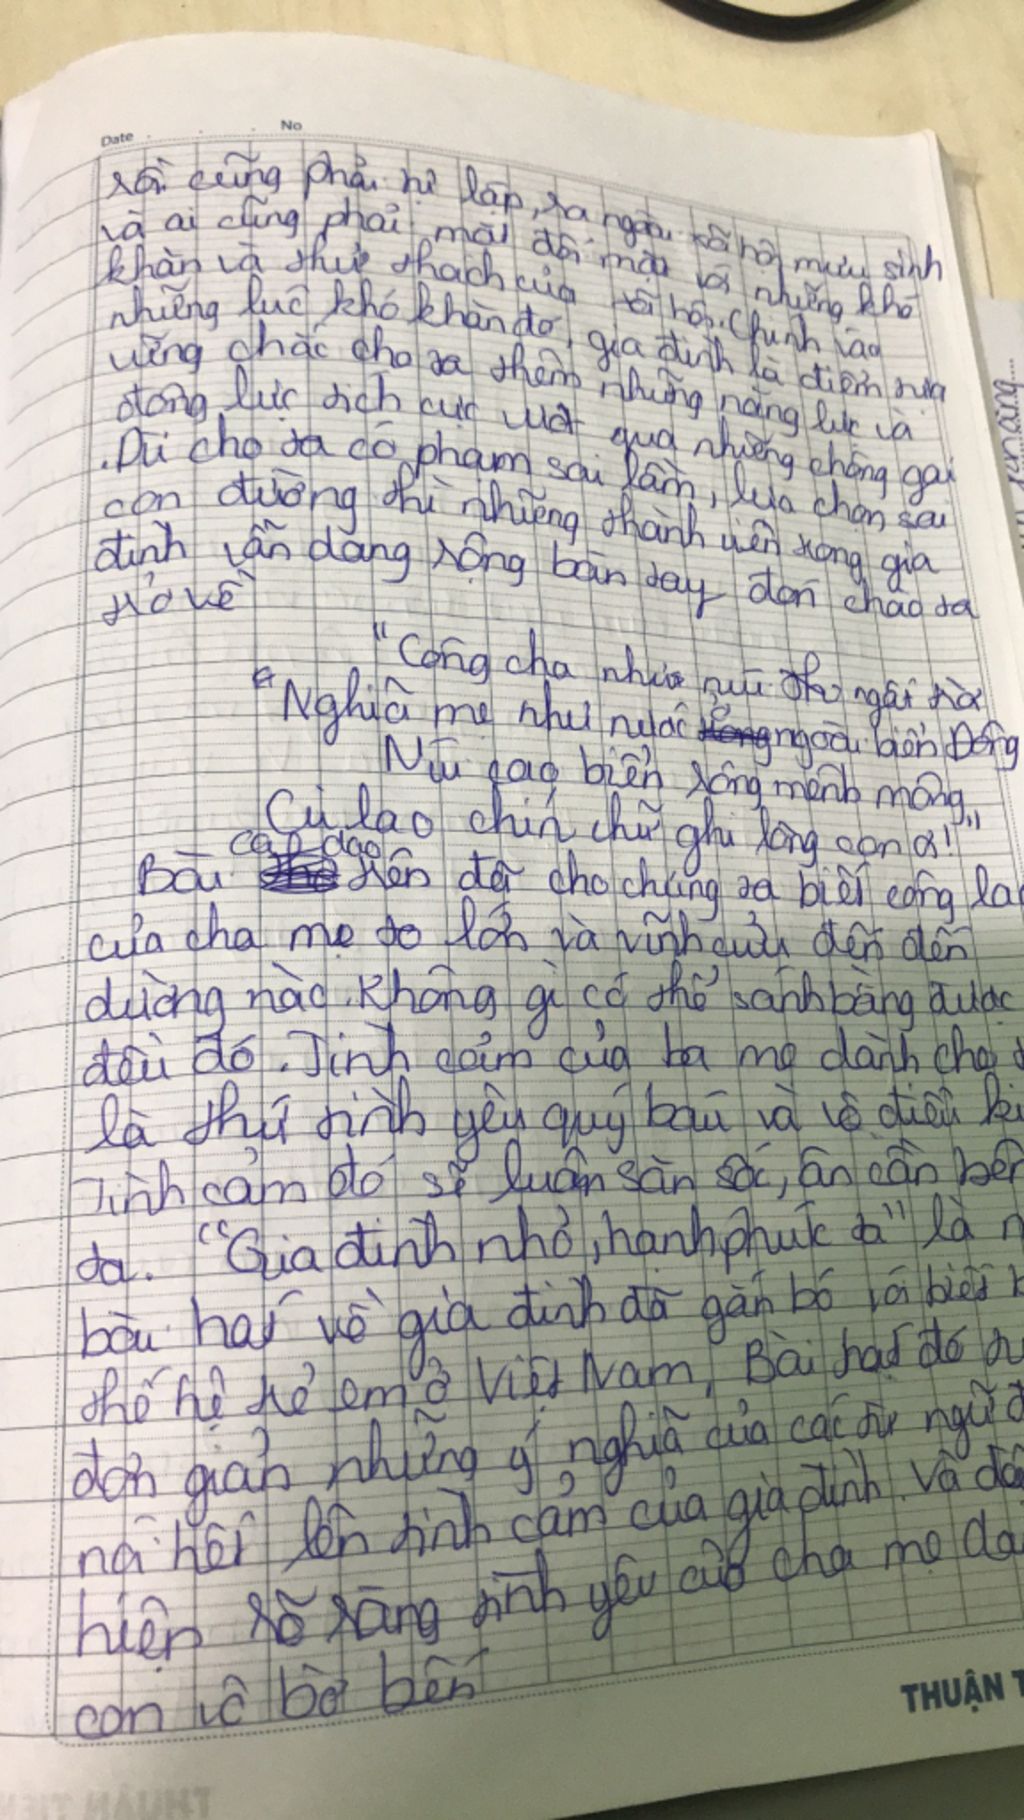 Date No
rồi cũng phải tự lập, ra ngoài xã hội mưu sinh
và ai cũng phải mặt đối mặt với những khó
khăn và thử thách của xã hội. Chính vào
những lúc khó khăn đó, gia đình là điểm tựa
vững chắc cho ta thêm những năng lực và
động lực tích cực vượt qua những chông gai
. Dù cho ta có phạm sai lầm, lựa chọn sai
con đường thì những thành viên trong gia
đình vẫn dang rộng bàn tay đón chào ta
trở về
"Công cha như núi ngất trời
"Nghĩa mẹ như nước ngoài biển Đông
Núi cao biển rộng mênh mông
Cù lao chín chữ ghi lòng con ơi!"
cao dao
Bài trên đã cho chúng ta biết công lao
của cha mẹ to lớn và vĩnh cửu đến đến
dường nào. Không gì có thể sánh bằng được
điều đó. Tình cảm của ba mẹ dành cho
là thứ tình yêu quý báu và vô điều
Tình cảm đó sẽ luôn săn sóc, ân cần bên
ta. "Gia đình nhỏ, hạnh phúc to" là
bài hát về gia đình đã gắn bó với biết
thế hệ trẻ em ở Việt Nam, Bài hát đó
đơn giản nhưng ý nghĩa của các từ ngữ
nói hết lên tình cảm của gia đình. Và
hiện rõ ràng tình yêu của cha mẹ
con vô bờ bến
THUẬN